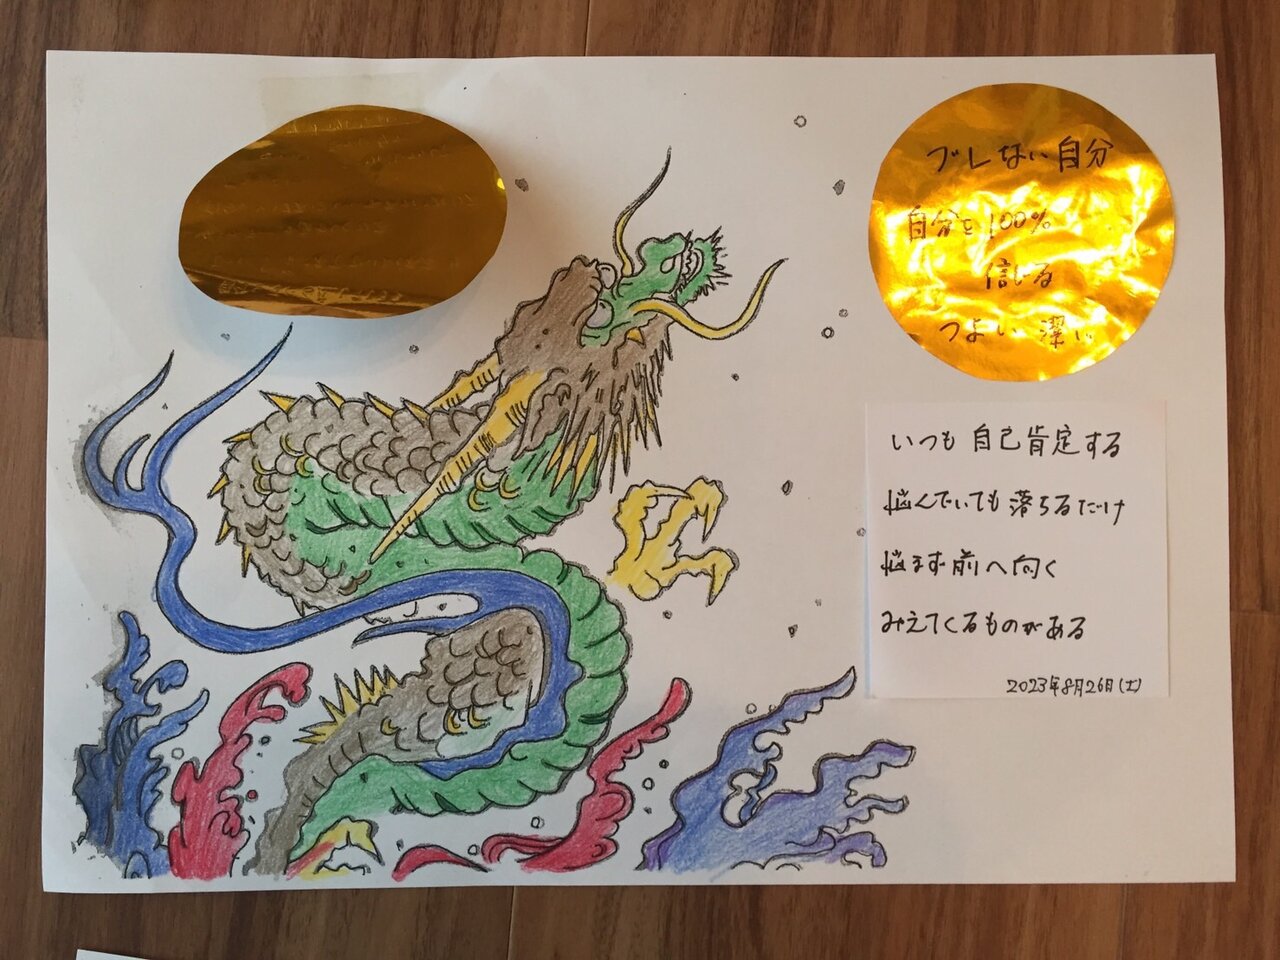 ブレない自分
自分を100%
信じる
つよい 潔い
いつも 自己肯定する
悩んでいても 落ちるだけ
悩まず 前へ向く
みえてくるものがある
2023年8月26日(土)